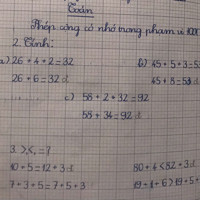 Toán
Phép cộng có nhớ trong phạm vi 100
2. Tính:
a) 26 + 4 + 2 = 32
b) 45 + 5 + 3 = 5
26 + 6 = 32 đ
45 + 8 = 53 đ
c) 58 + 2 + 32 = 92
58 + 34 = 92 đ
3. >, <, = ?
10 + 5 = 12 + 3 đ
80 + 4 < 82 + 3 đ
7 + 3 + 5 = 7 + 5 + 3
19 + 1 + 6 > 19 + 5 +